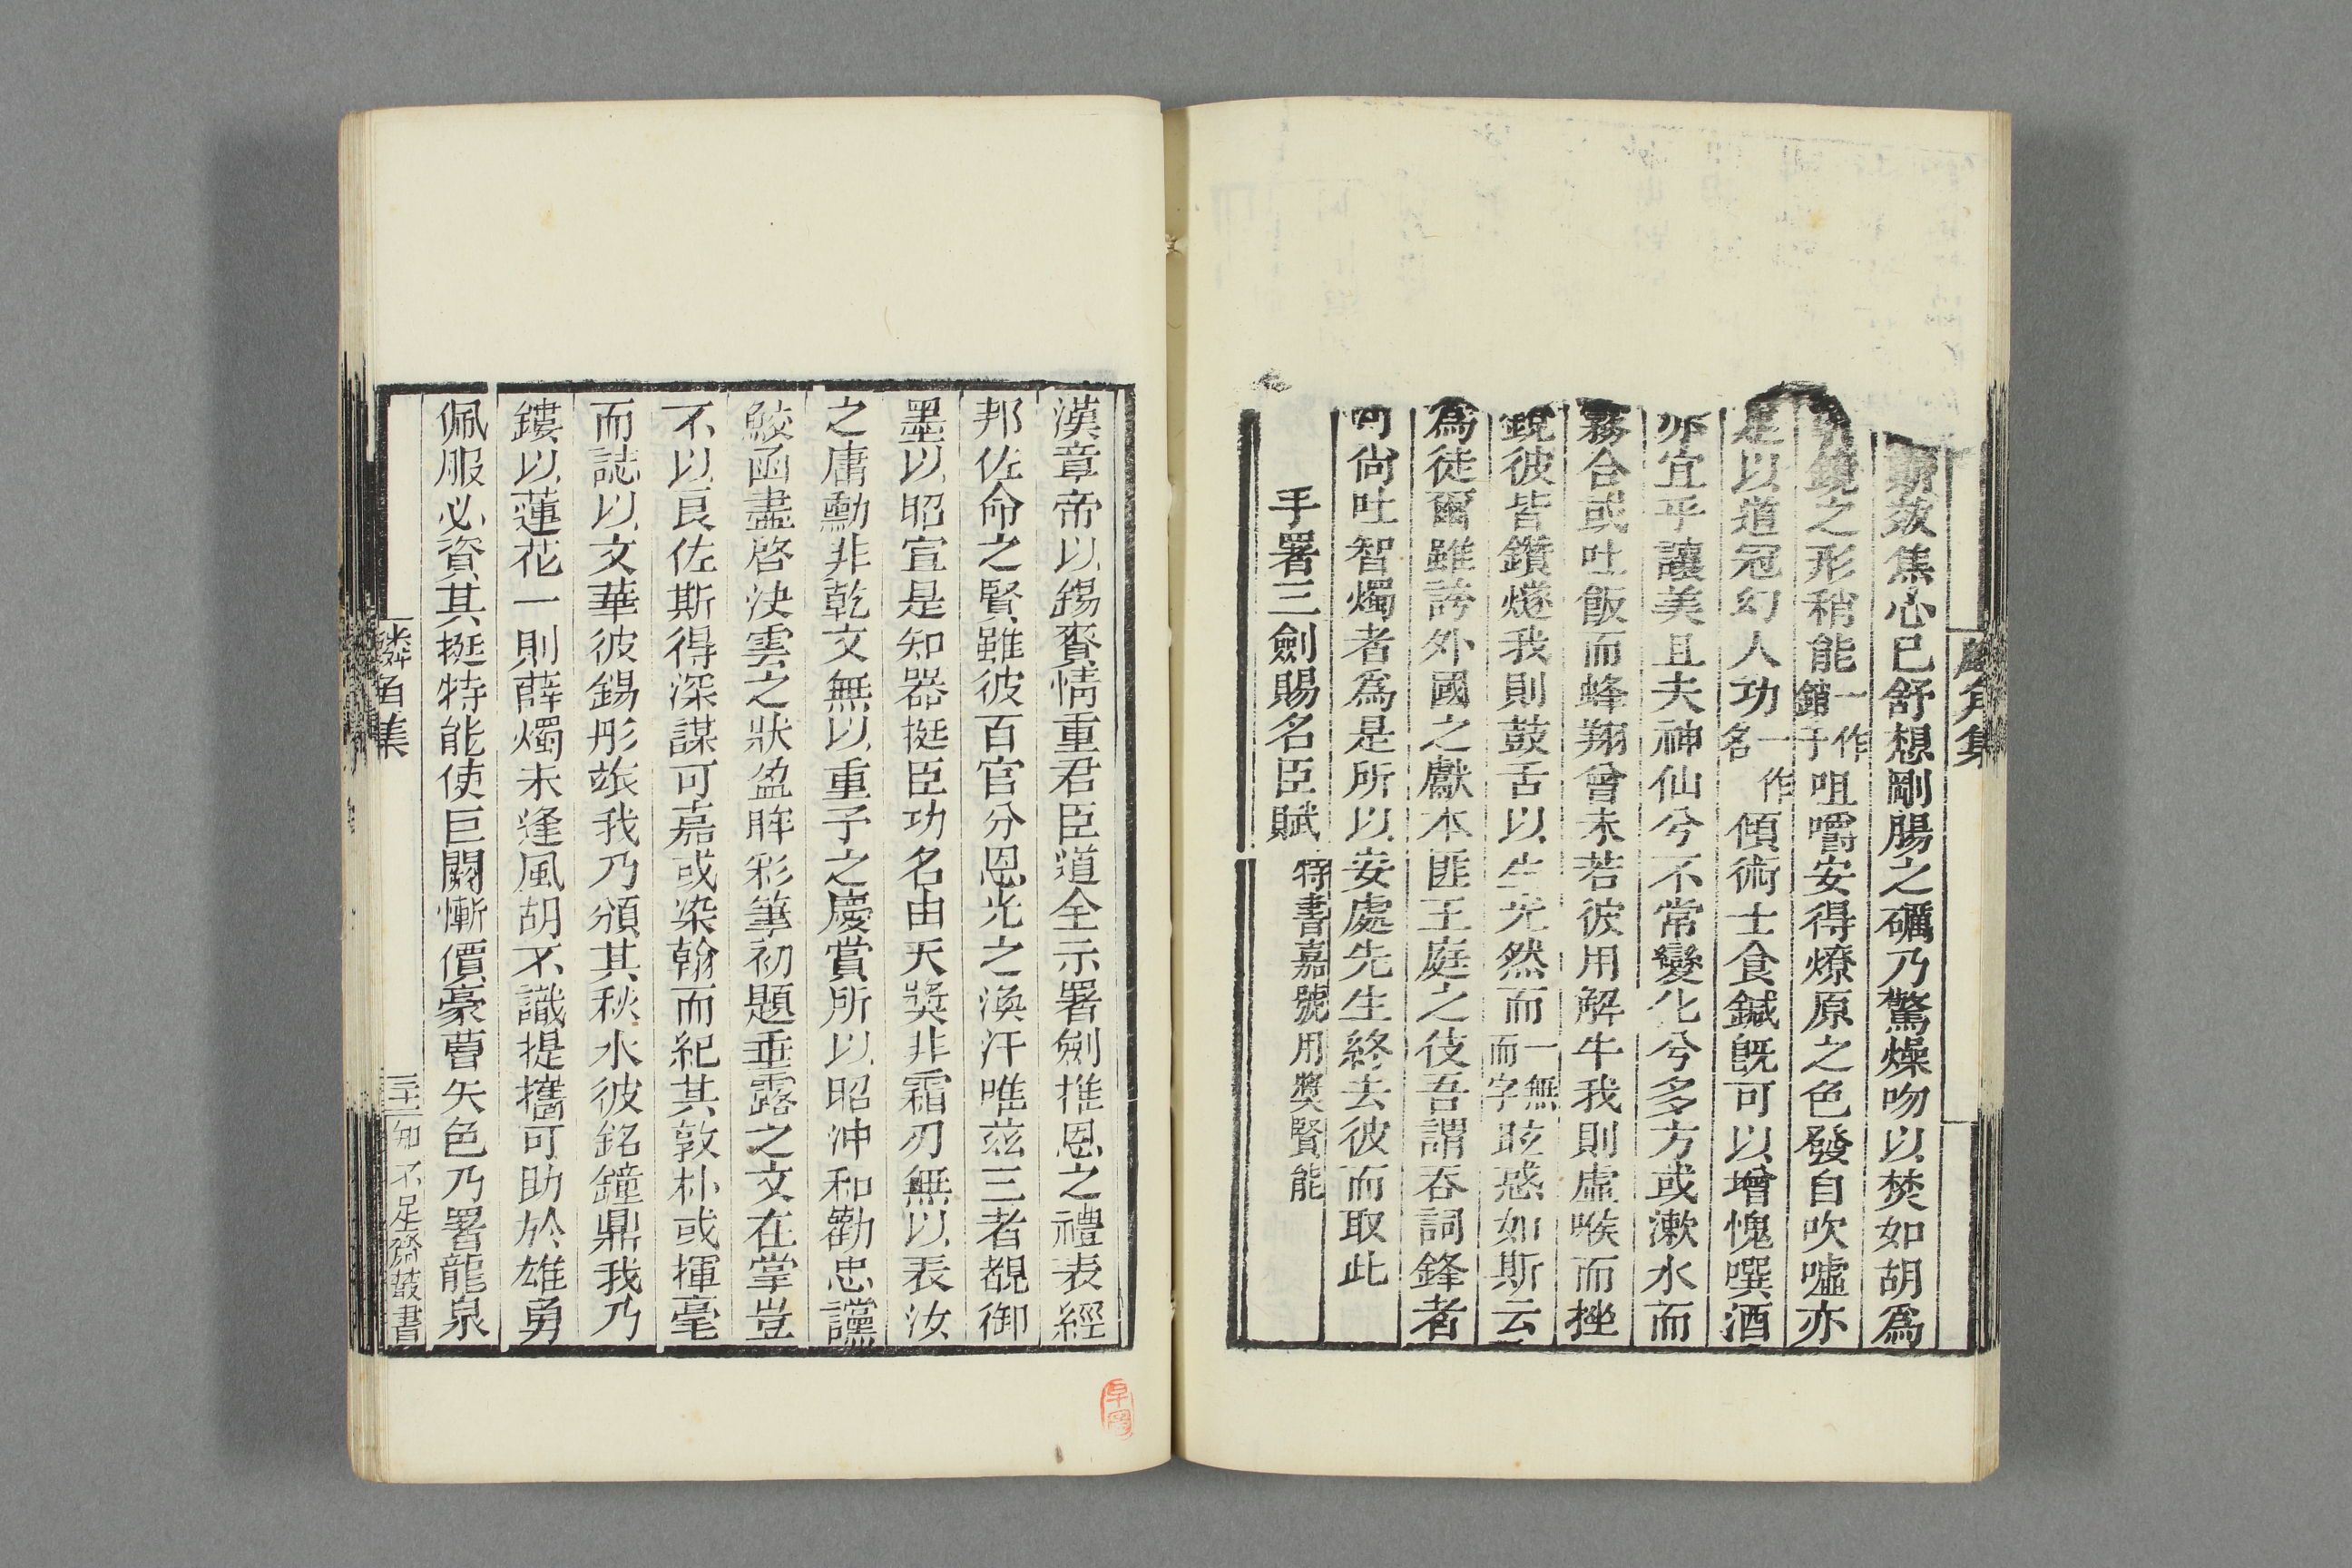 麟角集
斯效焦心已舒想剛腸之礪乃驚燥吻以焚如胡爲
鏡之形稍能一作錧于咀嚼安得燎原之色發自吹噓亦
足以道冠幻人功一作名傾術士食鍼旣可以增愧噀酒
亦宜乎讓美且夫神仙兮不常變化兮多方或漱水而
霧合或吐飯而蜂翔曾未若彼用解牛我則虛喉而挫
銳彼皆鑽燧我則鼓舌以生光然而一無而字眩惑如斯云
爲徒爾雖誇外國之獻本匪王庭之伎吾謂吞詞鋒者
可尙吐智燭者爲是所以妾處先生終去彼而取此
手署三劍賜名臣賦 特書嘉號用奬賢能
漢章帝以錫賚情重君臣道全示署劍推恩之禮表經
邦佐命之賢雖彼百官分恩光之渙汗唯茲三者覩御
墨以昭宣是知器挺臣功名由天奬非霜刃無以表汝
之庸勳非乾文無以重予之慶賞所以昭沖和勸忠讜
鮫函盡啓決雲之狀盈眸彩筆初題垂露之文在掌豈
不以良佐斯得深謀可嘉或染翰而紀其敦朴或揮毫
而誌以文華彼錫彤旅我乃頒其秋水彼銘鐘鼎我乃
鏤以蓮花一則薛燭未逢風胡不識提攜可助於雄勇
佩服必資其挺特能使巨闕慚價豪曹失色乃署龍泉
麟角集
三十二 知不足齋叢書